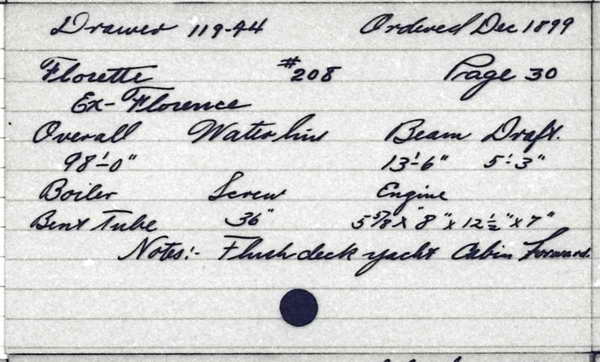 Drawer 119-44 Ordered Dec 1899
Florette #208 Page 30
Ex-Florence
Overall Waterline Beam Draft.
98'-0" 13'-6" 5'-3"
Boiler Screw Engine
Bent Tube 36" 5 5/8 x 8" x 12 1/2" x 7"
Notes:- Flush deck yacht Cabin Forward.